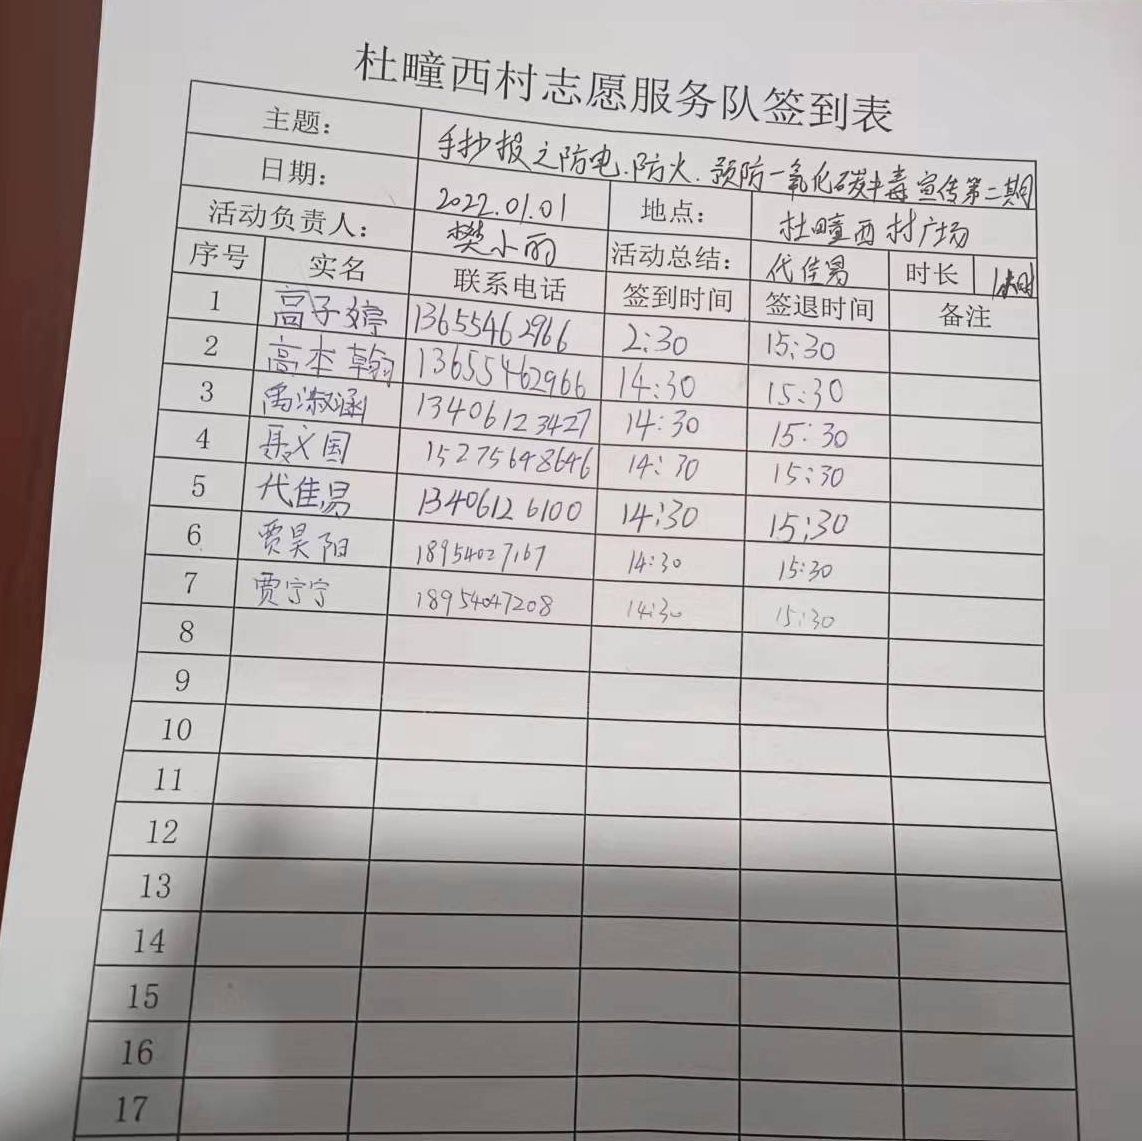 杜疃西村志愿服务队签到表
主题： 手抄报之防电.防火.预防一氧化碳中毒宣传第二期
日期： 2022.01.01 地点： 杜疃西村广场
活动负责人： 樊小丽 活动总结： 代佳易 时长 1小时
序号 实名 联系电话 签到时间 签退时间 备注
1 高子婷 13655462966 2:30 15:30
2 高本翰 13655462966 14:30 15:30
3 禹淑涵 13406123427 14:30 15:30
4 聂义国 15275648646 14:30 15:30
5 代佳易 13406126100 14:30 15:30
6 贾昊阳 18954027167 14:30 15:30
7 贾宁宁 18954047208 14:30 15:30
8
9
10
11
12
13
14
15
16
17